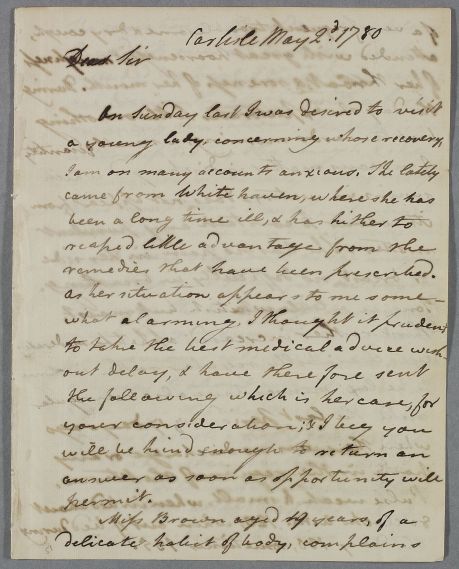 Carlisle May 2d. 1780
Dear Sir
On Sunday last I was desired to visit
a young lady, concerning whose recovery
I am on many accounts anxious. She lately
came from White haven, where she has
been a long time ill, & has hither to
reaped little advantage from the
remedies that have been prescribed.
As her situation appears to me some-
what alarming, I thought it prudent
to take the best medical advice with
out delay, & have there fore sent
the following which is her case, for
your consideration; & I beg you
will be kind enough to return an
answer as soon as opportunity will
permit.
Miss Brown aged 19 years, of a
delicate habit of body, complains